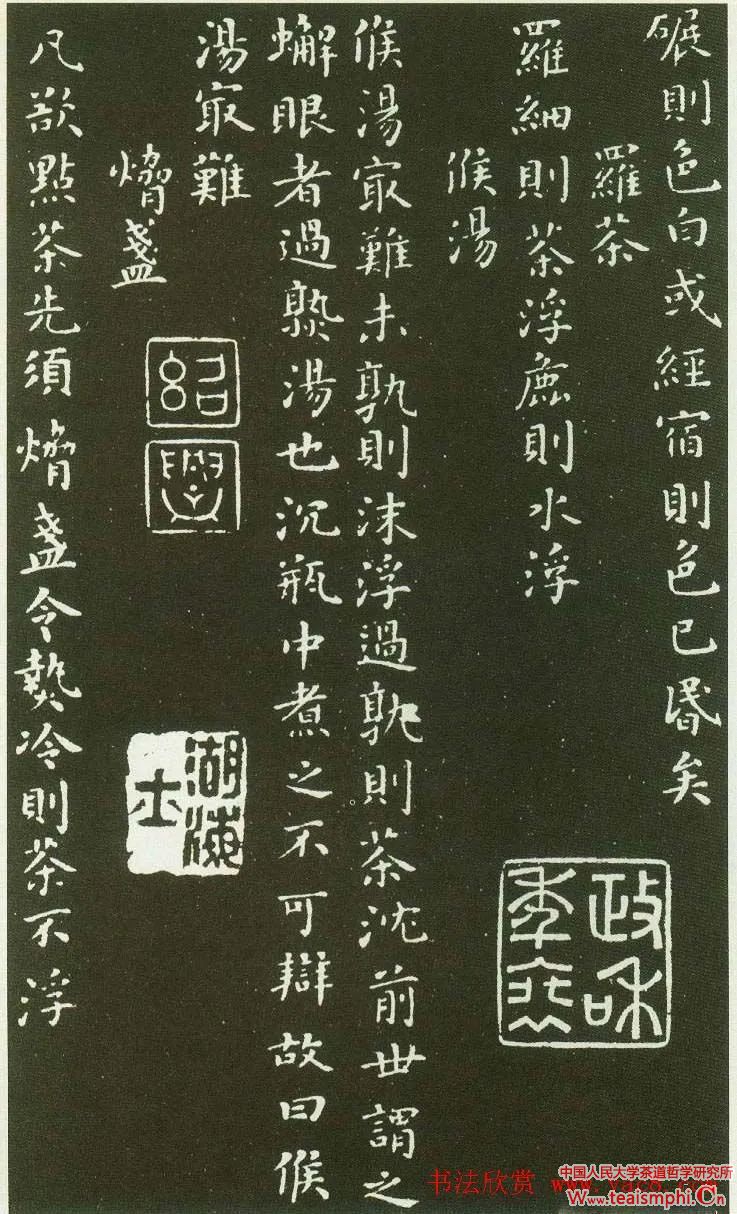 碾則色白或經宿則色已昬矣
羅茶
羅細則茶浮麁則水浮
候湯
候湯㝡難未孰則沫浮過孰則茶沈前世謂之
蠏眼者過熟湯也沉瓶中煮之不可辯故曰候
湯㝡難
熁盞
凡欲點茶先須熁盞令熱冷則茶不浮
政和
紹興
湖海
士
书法欣赏
中国人民大学茶道哲学研究所
www.teaismphi.Cn